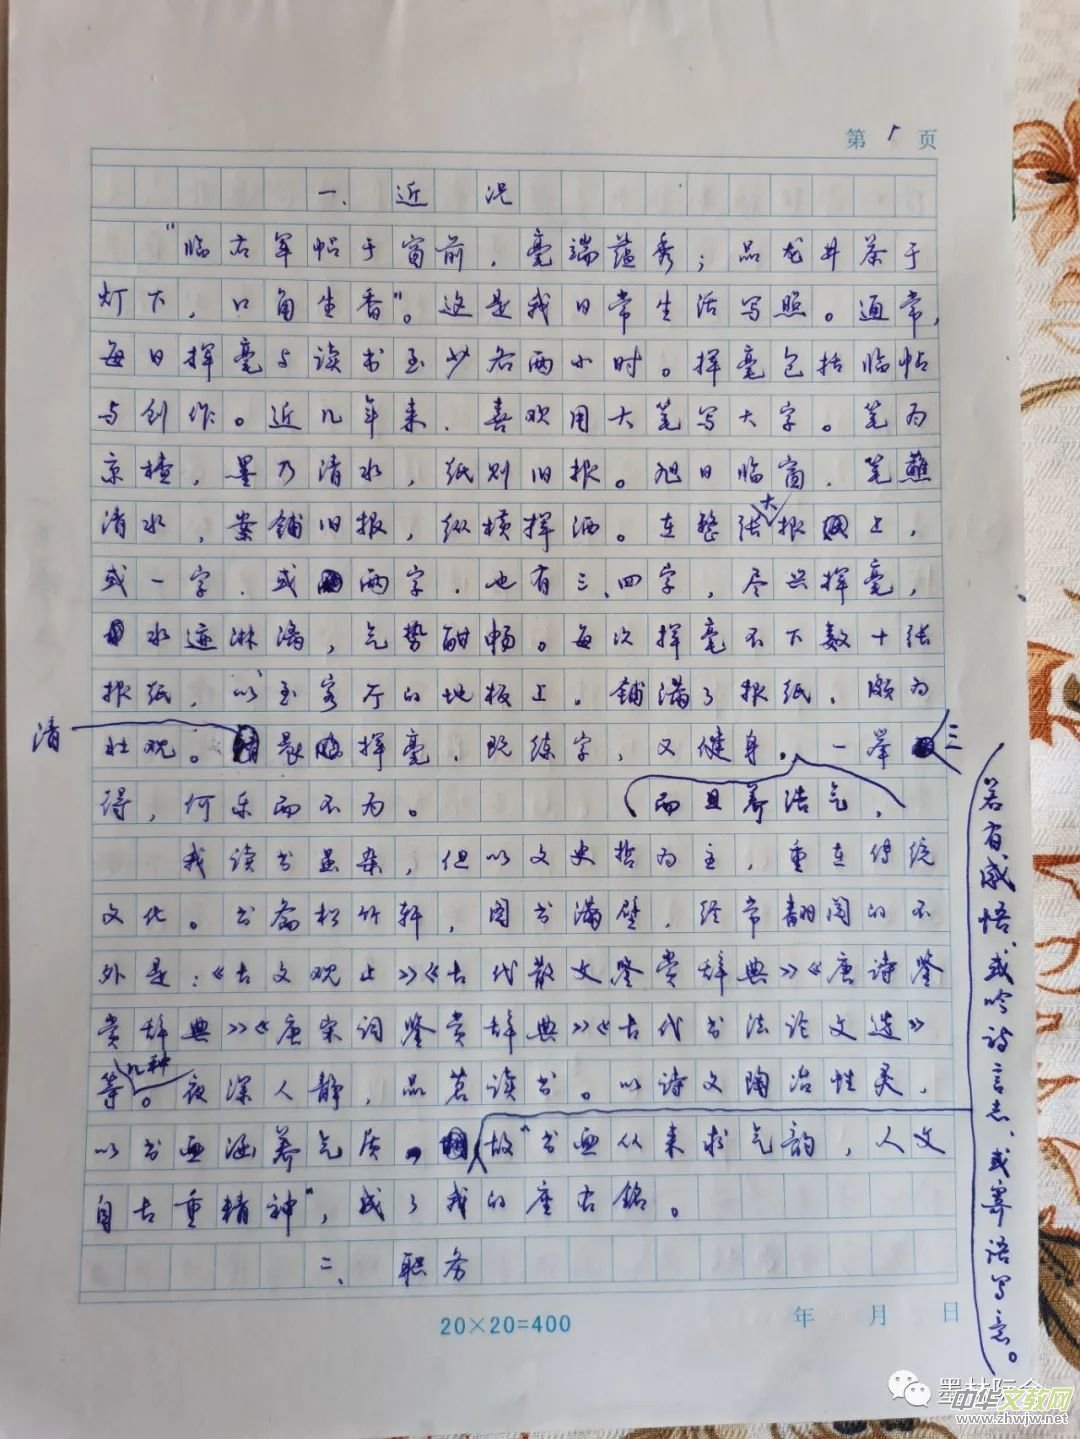 第1页
一、近况
“临右军帖于窗前，毫端蕴秀；品龙井茶于
灯下，口角生香”。这是我日常生活写照。通常，
每日挥毫与读书至少各两小时。挥毫包括临帖
与创作。近几年来，喜欢用大笔写大字。笔为
京楂，墨乃清水，纸则旧报。旭日临窗，笔蘸
清水，案铺旧报，纵横挥洒。在整张大报上，
或一字、或两字、也有三、四字，尽兴挥毫，
水迹淋漓，气势酣畅。每次挥毫不下数十张
报纸，以至客厅的地板上，铺满了报纸，颇为
壮观。清晨挥毫，既练字，又健身，一举三
得，何乐而不为。
而且养浩气，
我读书虽杂，但以文史哲为主，重在传统
文化。书斋松竹轩，图书满壁，经常翻阅的不
外是：《古文观止》《古代散文鉴赏辞典》《唐诗鉴
赏辞典》《唐宋词鉴赏辞典》《古代书法论文选》
等几种。夜深人静，品茗读书。以诗文陶冶性灵，
以书画涵养气质。故“书画从来求气韵，人文
自古重精神”，成了我的座右铭。
若有感悟、或吟诗言志、或寄语写意。
二、职务
20×20=400
年 月 日
墨林际会
中华文教网
www.zhwjw.net